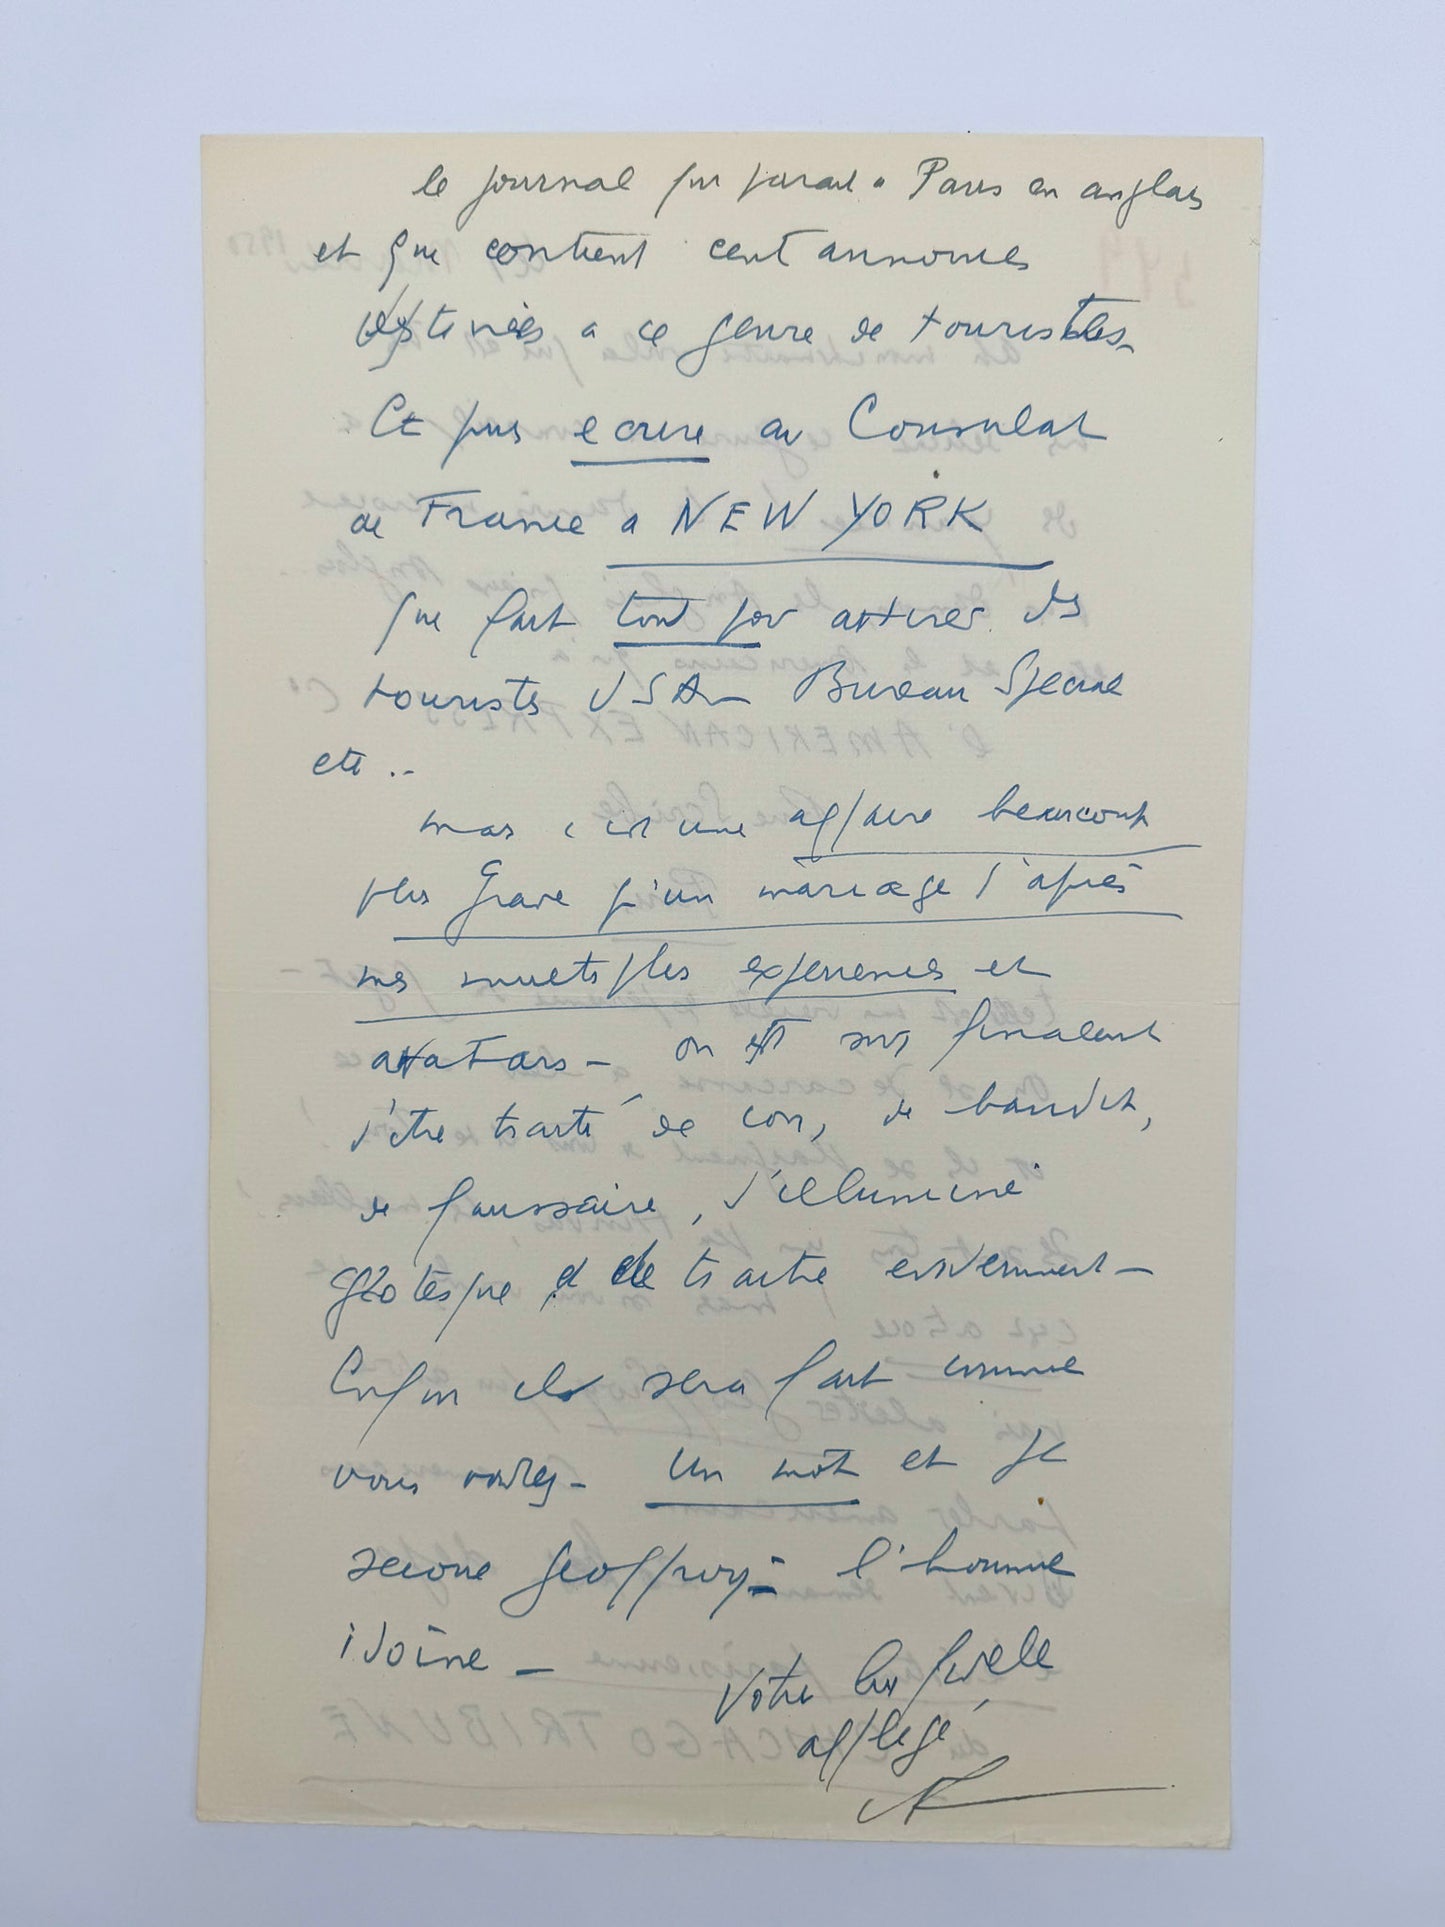 le journal qui parait a Paris en anglais
et qui contient cent annonces
destinées a ce genre de touristes -
Et puis ecrire au Consulat
de France a NEW YORK
qui fait tout pour attirer des
touristes USA - Bureau Special
etc ..
mais c'est une affaire beaucoup
plus grave qu'un mariage d'après
mes multiples experiences et
avatars - on est sur finalement
d'être traité de con, de bandit,
de faussaire, d'illuminé
grotesque et de traitre evidemment -
Enfin il sera fait comme
vous voudrez - un mot et je
secoue Geoffroy - l'homme
idoine -
Votre bien fidele
affligé